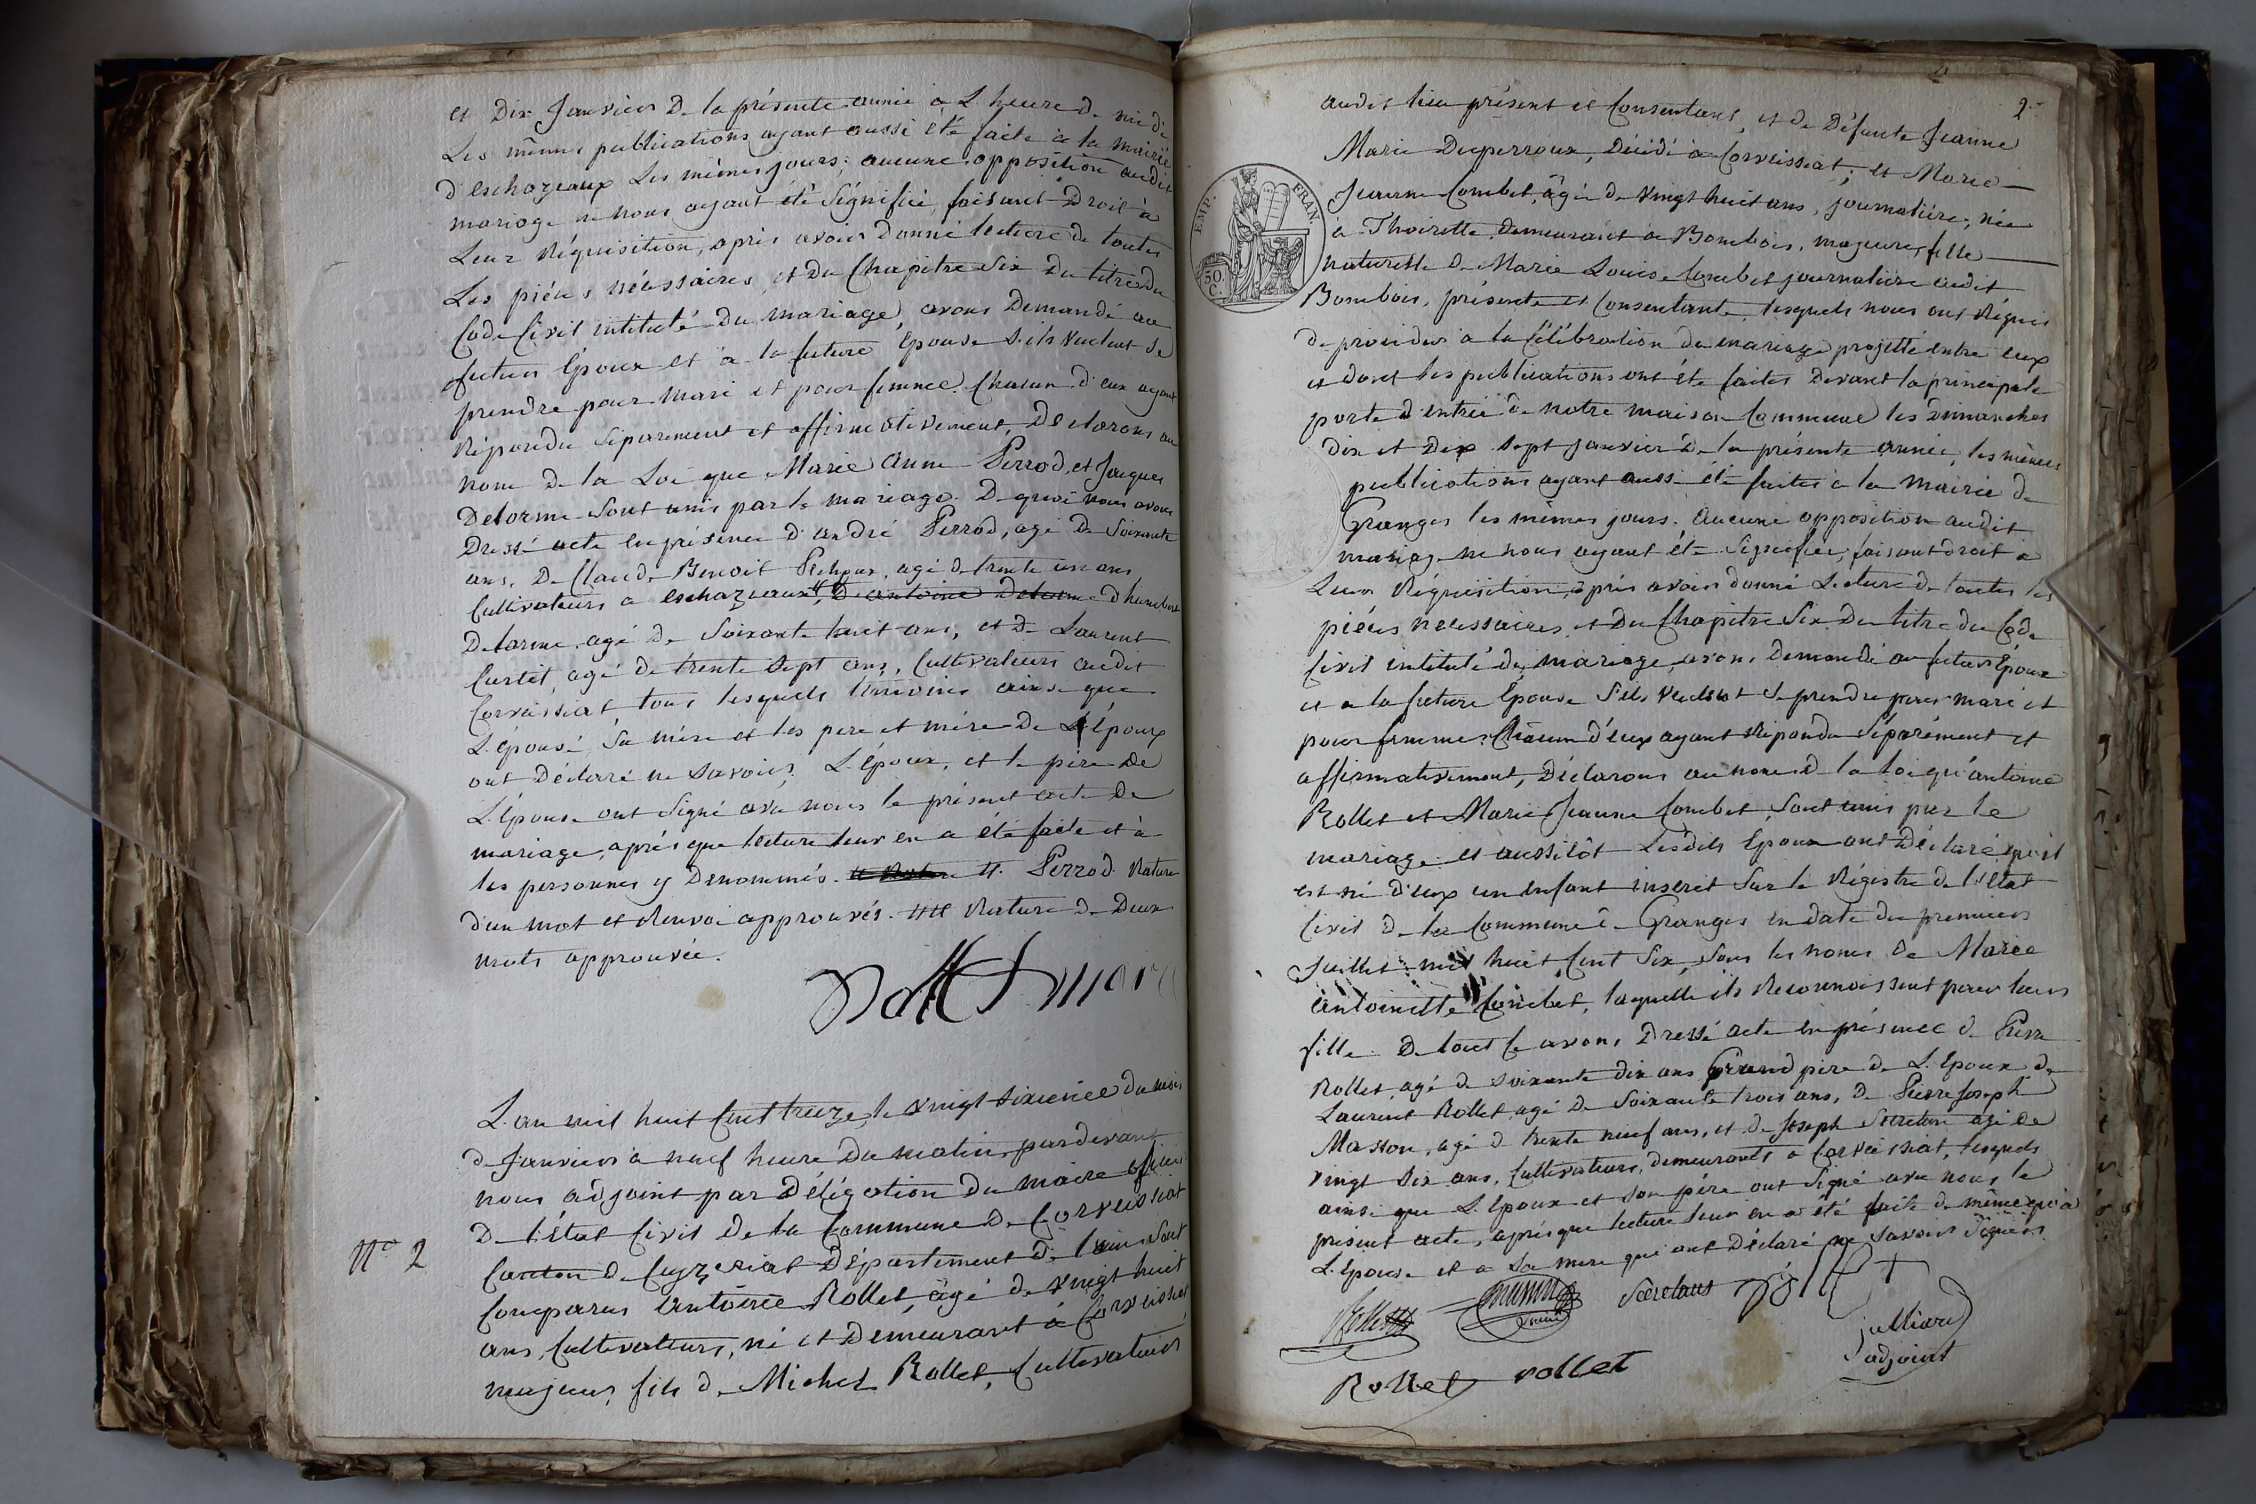 et Dix Janvier D. la présente année à L'heure de midi
Les mêmes publications ayant aussi été faite à la mairie
d'eschazeaux Les mêmes jours; aucune opposition audit
mariage ne nous ayant été Signifiée, faisant Droit à
Leur Réquisition, après avoir Donné lecture de toutes
Les pièces nécessaires, et du Chapitre Six Du titre du
Code Civil intitulé Du mariage, avons Demandé au
futur Epoux et à la future Epouse S'ils veulent se
prendre pour mari et pour femme. Chacun d'eux ayant
Répondu Séparement et affirmativement, Déclarons au
nom De la Loi que Marie Anne Perrod, et Jacques
Delorme Sont unis par le mariage. De quoi nous avons
Dressé acte en présence d'andré Perrod, agé de Soixante
ans, De Claude Benoit agé de trente un ans
Cultivateurs à eschazeaux D antoine Delorme D humbert
Delorme agé De Soixante huit ans, et De Laurent
Curtet, agé de trente Sept ans, Cultivateurs audit
Corveissiat, tous lesquels témoins ainsi que
L'épouse, Sa mère et les pere et mère de L'Epoux
ont Déclaré ne Savoir, L'Epoux, et le père De
L'Epouse ont Signé avec nous le présent acte De
mariage, après que lecture leur en a été faite et à
les personnes y Dénommés. H. Perrod. Rature
d'un mot et Renvoi approuvés. HH Rature de Deux
mots approuvée.
N° 2
L'an mil huit Cent treize, le vingt Sixième du mois
de Janvier à neuf heure Du matin, pardevant
nous adjoint par Délégation Du maire officier
De l'état Civil De la Commune De Corveissiat
Canton De Ceyzeriat Département De l'ain, Sont
Comparus Antoine Rollet, âgé de vingt huit
ans, Cultivateur, né et Demeurant à Corveissiat
majeur, fils de Michel Rollet, Cultivateur
2
audit lieu présent et Consentant, et de Défunte Jeanne
Marie Duperroux, Décédé à Corveissiat; et Marie
Jeanne Combet, âgée de vingt huit ans, journalière, née
à Thoirette Demeurant à Bombois, majeure, fille
naturelle De Marie Louise Combet journalière audit
Bombois, présente et Consentante, lesquels nous ont Réquis
de procéder à la Célébration du mariage projetté entre eux
et dont les publications ont été faites Devant la principale
porte d'entrée De notre maison Commune les Dimanches
dix et Dix sept Janvier De la présente année, les mêmes
publications ayant aussi été faites à la Mairie De
Granges les mêmes jours. Aucune opposition audit
mariage ne nous ayant été Signifiée; faisant droit à
Leur Réquisition, après avoir donné Lecture de toutes les
pièces nécessaires, et Du Chapitre Six Du titre du Code
Civil intitulé du mariage, avons Demandé au futur Epoux
et à la future Epouse S'ils veulent se prendre pour mari et
pour femme? Chacun d'eux ayant Répondu Séparément et
affirmativement, Déclarons au nom de la loi qu'antoine
Rollet et Marie Jeanne Combet, Sont unis par le
mariage. et aussitôt Lesdits Epoux ont Déclaré qu'il
est né d'eux un enfant inscrit Sur le Régistre de l'état
Civil De la Commune de Granges en date du premier
Juillet mil huit Cent Six, sous les noms De Marie
Antoinette Combet, laquelle ils Reconnoissent pour leur
fille. De tout Ce avons Dressé acte en présence de Pierre
Rollet, agé de soixante dix ans Grand père de L'Epoux de
Laurent Rollet, agé De Soixante trois ans, De Pierre Joseph
Masson, agé De trente neuf ans, et de Joseph Secretan agé de
vingt six ans, Cultivateurs, demeurants à Corveissiat, lesquels
ainsi que L'Epoux et Son père ont Signé avec nous le
présent acte, après que lecture leur en a été faite de même qu'à
L'Epouse et à Sa mere qui ont Déclaré ne Savoir Signer.
EMP. FRAN.
50. C.
Secretans
Rollet rollet
julliard
adjoint